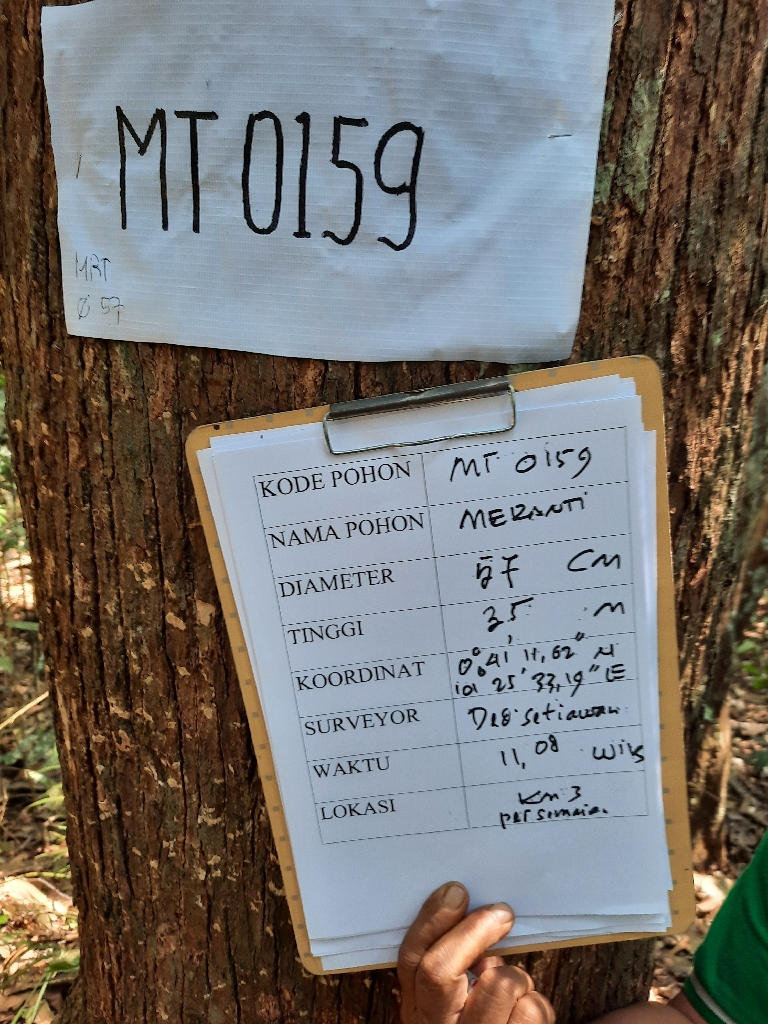 MT 0159
MRT
Ø 57
KODE POHON MT 0159
NAMA POHON MERANTI
DIAMETER 57 CM
TINGGI 35 M
KOORDINAT 0° 41' 11,62" N
101° 25' 33,19" E
SURVEYOR Dedi setiawan
WAKTU 11,08 WIB
LOKASI KM 3
persemaian